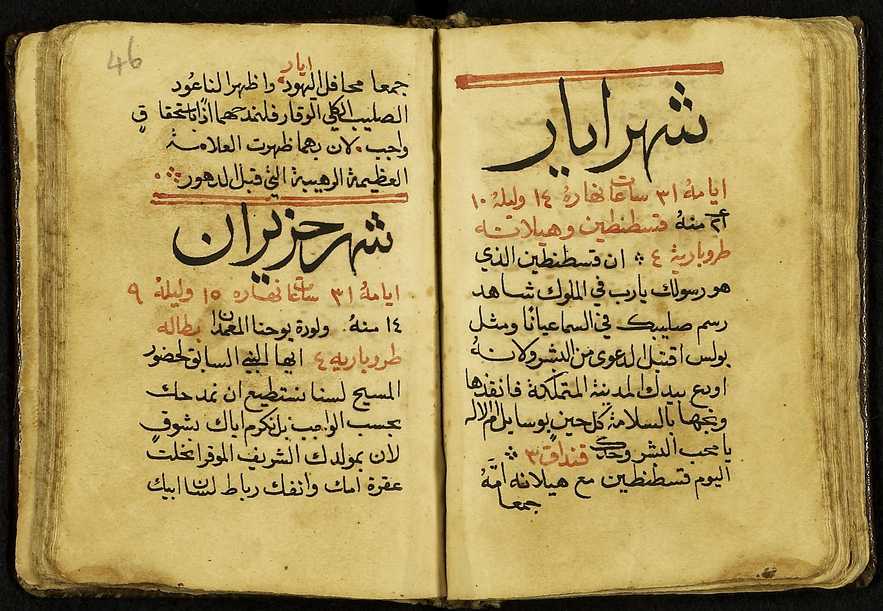 شهر ايار
ايامهُ ٣١ ساعات نهارهُ ١٤ وليلهُ ١٠
٢١ منهُ قسطنطين وهيلانه
طروبارية ٤ ان قسطنطين الذي
هو رسولك يارب في الملوك شاهد
رسم صليبك في السما عيانًا ومثل
بولس اقتبل الدعوى من البشر ولانهُ
اودع بيدك المدينة المتملكة فانقذها
ونجها بالسلامة كل حين بوسايل ام الاله
يا محب البشر وحدك قنداق ٣
اليوم قسطنطين مع هيلانه امَّهُ
جمعا
46
ايار
جمعا محافل اليهود واظهرا لنا عُود
الصليب الكلي الوقار فلنمدحهما اذًا باستحقاقٍ
واجب لان بهما ظهرت العلامة
العظيمة الرهيبة التي قبل الدهور
شهر حزيران
ايامهُ ٣١ ساعات نهاره ١٥ وليلهُ ٩
١٤ منهُ ولودة يوحنا المعمدان بطاله
طروباريه ٤ ايها النبي السابق لحضور
المسيح لسنا نستطيع ان نمدحك
بحسب الواجب بل نكرم اياك بشوقٍ
لان بمولدك الشريف الموقر انحلت
عقرة امك وانفك رباط لسان ابيك